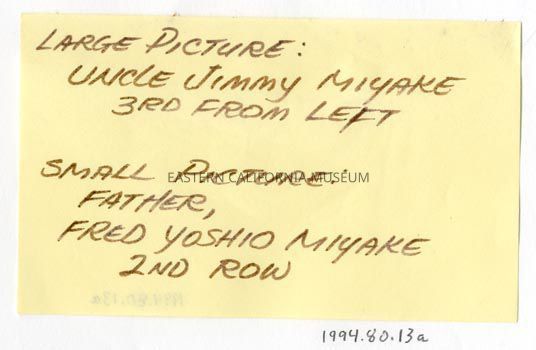 LARGE PICTURE:
UNCLE JIMMY MIYAKE
3RD FROM LEFT
SMALL PICTURE:
EASTERN CALIFORNIA MUSEUM
FATHER,
FRED YOSHIO MIYAKE
2ND ROW
1994.80.13a
1994.80.13a